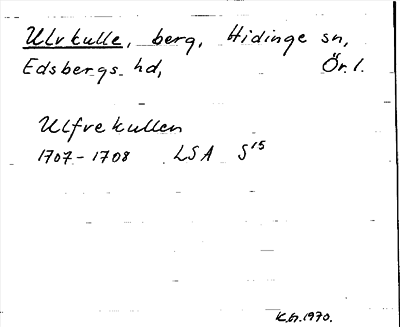 Ulvkulle, berg, Hidinge sn,
Edsbergs hd, Ör. l.
Ulfvekullen
1707-1708 LSA S15
K.G. 1970.